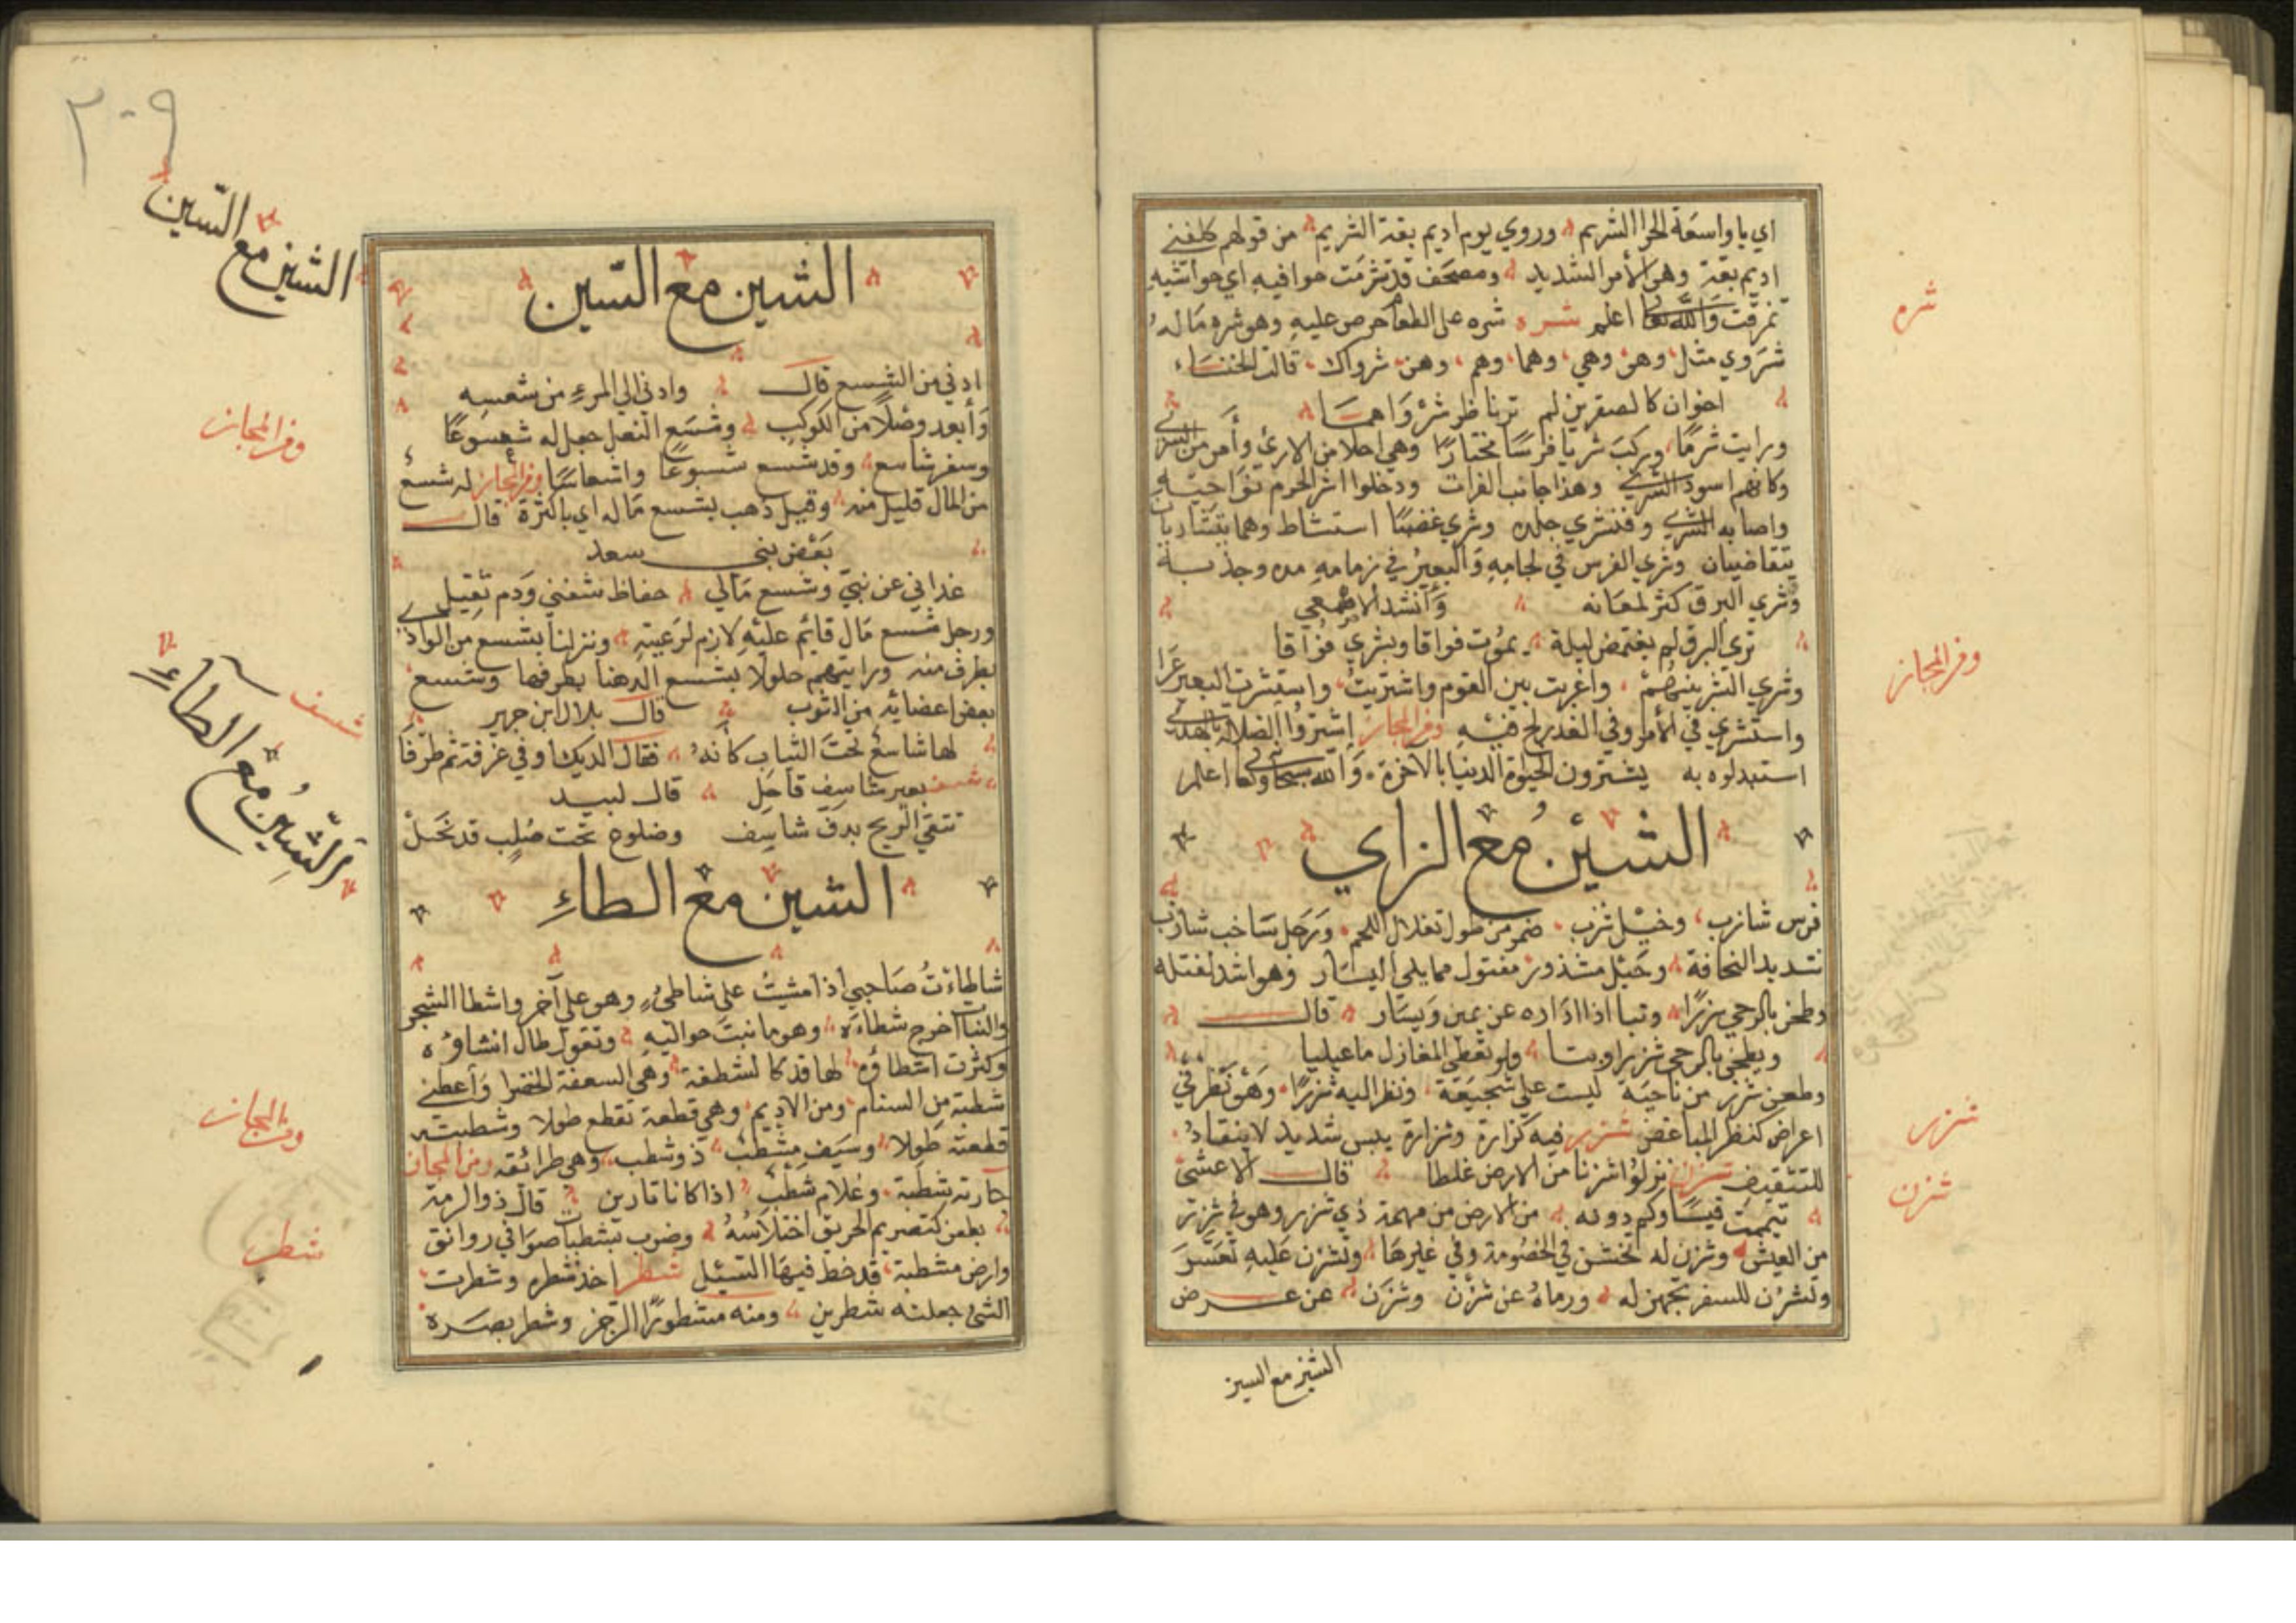 اي يا واسعة الحر الشريم وروي يوم اديم بقة الشريم من قولهم كلفني
اديم بقة وهو الأمر الشديد ومصحف قد تشرمت حوافيه اي حواشيه
تمزقت والله تعا اعلم شره شره على الطعام حرص عليه وهو شره ماله
شروي مثل وهو وهي وهما وهم وهن شرواك قالت الخنساء
اخوان كالصقرين لم ترناظر شرواهما
ورايت شرما وركب شريا فرسا مختارا وهي احلا من الاري وأمر من الشري
وكانهم اسود الشري وهذا جانب الفرات ودخلوا اشر الحرم نواحيه
واصابه الشري وفنشري جلده وشري غضبا استشاط وهما يتشاريان
يتقاضيان وشري الفرس في لجامه والبعير في زمامه مده وجذبة
وشري البرق كثر لمعانه وأنشد الاصمعي
تري البرق لم يغتمض ليلة يموت فواقا ويشري فواقا
وشري الشر بينهم واغربت بين القوم واشتريت واستشرت البعير عرا
واستشري في الأمر وفي الغدر لج فيه وفر المجاز اشتروا الضلالة بالهدي
استبدلوه به يشترون الحيوة الدنيا بالآخرة والله سبحا وتعا اعلم
الشين مع الزاي
فرس شازب وخيل شزب ضمر من طول تغلال اللحم ورجل شاخب شازب
شديد النحافة وحبل مشذور مفتول مما يلي اليسار وهو اشد لفتله
وطحن بالرحي شزرا وتبا اذا اداره عن يمين ويسار قال
ويطحن بالرحي شزرا وبتا ولو نعطي المغازل ما عيينا
وطعن شزر من ناحيه ليست علي سجيعة ونظر اليه شزرا وهو نظر في
اعراض كنظر المباغض شزر فيه كزازة وشزازة يبس شديد لا ينقاد
للتثقيف شزن نزلوا شزنا من الارض غلطا قال الاعشى
تيممت قيسا وكم دونه من الارض من مهمة ذي شزر وهو في شزر
من العيش وشزن له تخشن في الخصومة وفي غيرها وتشزن عليه تعسر
وتشزن للسفر تجهز له ورماه عن شزن وشزن عن عرض
الشين مع السين
شره
وفر المجاز
شزر
شزن
٢٠٩
الشين مع السين
الشين مع السين
ادني من الشسع قال وادني الي المرء من شسعه
وأبعد وصلا من الكوكب وشسع النعل جعل له شسوعا
وسفر شاسع وقد شسع شسوعا واشعاسا وفر المجاز له شسع
من المال قليل منه وقيل ذهب بشسع ماله اي باكثره قال
بعض بني سعد
عداني عن نبي وشسع مالي حفاظ شفني ودم ثقيل
ورجل شسع مال قائم عليه لازم لرعيته ونزلنا بشسع من الوادي
بطرف منه ورايتهم حلولا بشسع الدهنا بطرفها وشسع
بعض اعضائه من الثوب قال بلال ابن جرير
لها شاسع تحت الثياب كأنه فقال الديك اوفي غرفة ثم طرفا
شسف بعير شاسف قاحل قال لبيد
تتقي الريح بدف شاسف وضلوع تحت صلب قد نحل
الشين مع الطاء
شاطأت صاحبي اذا مشيت علي شاطئ وهو علي آخر واشطا الشجر
والنبات اخرج شطاءه وهو ما نبت حواليه وتقول طال انشاؤه
وكثرت اشطاؤه لها قد كالشطفة وهي السعفة الخضرا وأعطني
شطبة من السنام ومن الاديم وهي قطعة تقطع طولا وشطبته
قطعته طولا وسيف مشطب ذو شطب وهي طرائقه ومن المجاز
جارية شطبة وغلام شطب اذا كانا تارين قال ذو الرمة
بطعن كتضريم الحريق اختلاسه وضرب بشطبات صوافي روانق
وارض مشطبة قد خط فيها السيل شطر اخذ شطره وشطرت
الشئ جعلته شطرين ومنه مشطورا الرجز وشطر بصره
وفر المجاز
شسف
الشين مع الطاء
ومن المجاز
شطب